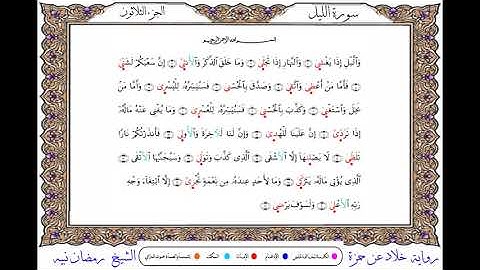 سورة الليل
الجزء الثلاثون
بسم الله الرحمن الرحيم
وَاللَّيْلِ إِذَا يَغْشَىٰ وَالنَّهَارِ إِذَا تَجَلَّىٰ وَمَا خَلَقَ الذَّكَرَ وَالْأُنثَىٰ إِنَّ سَعْيَكُمْ لَشَتَّىٰ
فَأَمَّا مَنْ أَعْطَىٰ وَاتَّقَىٰ وَصَدَّقَ بِالْحُسْنَىٰ فَسَنُيَسِّرُهُ لِلْيُسْرَىٰ وَأَمَّا مَنْ
بَخِلَ وَاسْتَغْنَىٰ وَكَذَّبَ بِالْحُسْنَىٰ فَسَنُيَسِّرُهُ لِلْعُسْرَىٰ وَمَا يُغْنِي عَنْهُ مَالُهُ
إِذَا تَرَدَّىٰ إِنَّ عَلَيْنَا لَلْهُدَىٰ وَإِنَّ لَنَا لَلْآخِرَةَ وَالْأُولَىٰ فَأَنذَرْتُكُمْ نَارًا
تَلَظَّىٰ لَا يَصْلَاهَا إِلَّا الْأَشْقَى الَّذِي كَذَّبَ وَتَوَلَّىٰ وَسَيُجَنَّبُهَا الْأَتْقَى
الَّذِي يُؤْتِي مَالَهُ يَتَزَكَّىٰ وَمَا لِأَحَدٍ عِندَهُ مِن نِّعْمَةٍ تُجْزَىٰ إِلَّا ابْتِغَاءَ وَجْهِ
رَبِّهِ الْأَعْلَىٰ وَلَسَوْفَ يَرْضَىٰ
رواية خلاد عن حمزة
الشيخ رمضان نبيه